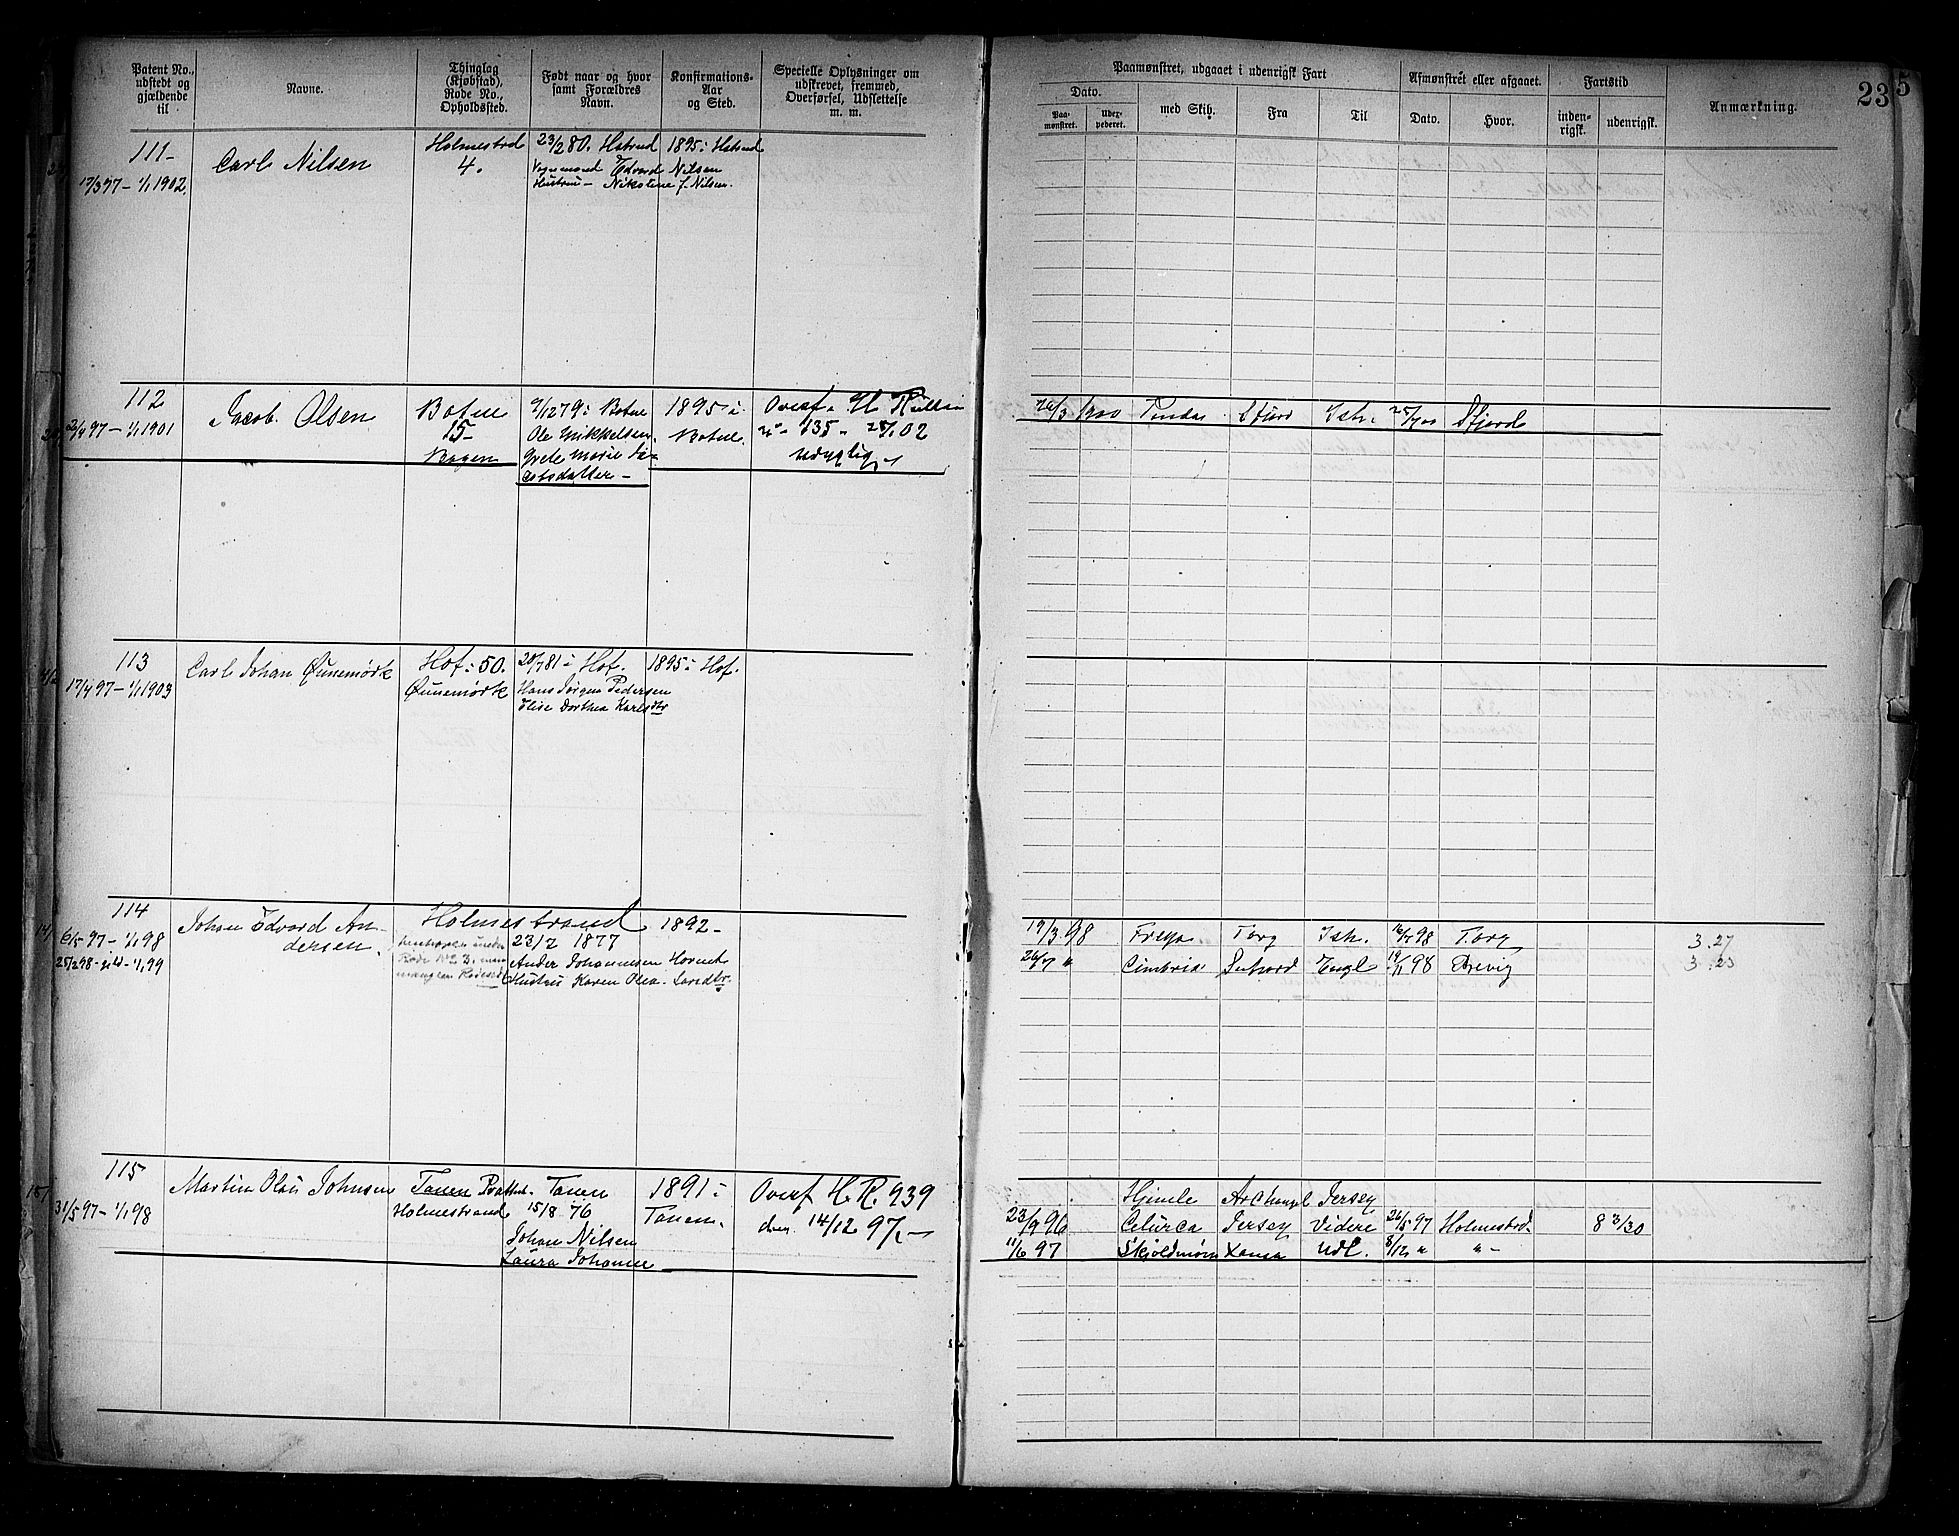 Patent No., udstedt og gjældende til
Navne.
Thinglag (Kjøbstad), Rode No., Opholdssted.
Født naar og hvor samt Forældres Navn.
Konfirmations-Aar og Sted.
Specielle Oplysninger om udskrevet, fremmed, Overførsel, Udslettelse m. m.
Paamønstret, udgaaet i udenrigsk Fart
Dato.
Paa-mønstret.
Udex-pederet.
med Skib.
Fra
Til
Afmønstret eller afgaaet.
Dato.
Hvor.
Fartstid
inden-rigsk.
udenrigsk.
Anmærkning.
23
5
111-
17/3 97 - 1/1 1902.
Carl Nilsen
Holmestrd
4.
23/2 80. Hstrnd
Edvard Nilsen
Hustru - Nikoline f. Nilsen.
1895 i Hstrnd
112
2/4 97 - 1/1 1901
Jacob Olsen
Botne
15-
Bogen
9/12 79 i Botne
Ole Mikkelsen.
Grete Marie Ja-
cobsdatter -
1895 i
Botne.
Overf. H Rullen
No - 135 - 28/1 02
udyglig
26/3 1900 Pindar Sfjord Ish. 25/7 00 Sfjord
113
17/4 97 - 1/1 1903
Carl Johan Øunemørk
Hof: 50.
Øunemørk
20/7 81 i Hof.
Hans Jørgen Pedersen
Elise Dorthea Karlsdtr
1895 i Hof.
114
6/5 97 - 1/1 98
25/2 98 - 1/1 99
Johan Edvard An-
dersen.
Holmestrand
23/2 1877
Ander Johannesen
Hustru Karen Olea Larsdtr.
1892 -
19/3 98 Freya Torg Ish. 16/7 98 Torg 3.27
26/7 " Cimbria Engl 19/11 98 Brevig 3.23
115
31/5 97 - 1/1 98
Martin Olaus Johnsen
Holmestrand
Tanem
15/8 76
Johan Nilsen
Laura Johanne
1891 i
Tanem.
Overf H.R. 939
den 14/12 97. -
Hjemle Archangel Jersey
23/9 96 Celurca Jersey Videre 26/5 97 Holmestrd. 8 3/30
11/6 97 Skjoldmøen Xania Udl. 8/12 " " -